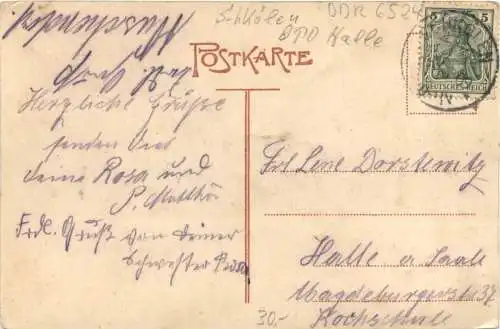 Schkölen DDR 6524
OPD Halle
POSTKARTE
5 5
DEUTSCHES REICH
Herzliche Grüße
senden dir
deine Rosa und
P.
Frdl. Gruß von deiner
Schwester
Frl Lene Dorstewitz
Halle a Saale
Magdeburgerstr 37
Kochschule
30,-